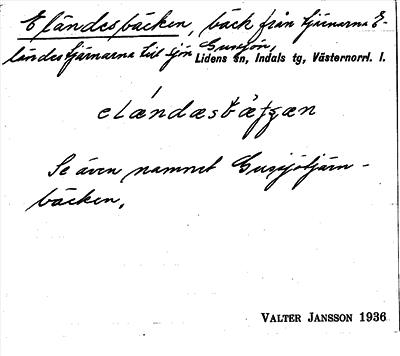 Eländesbäcken, bäck från tjärnarna E-
ländestjärnarna till sjön Gussjön,
Lidens sn, Indals tg, Västernorrl. l.
Se även namnet Gussjötjärn-
bäcken.
VALTER JANSSON 1936